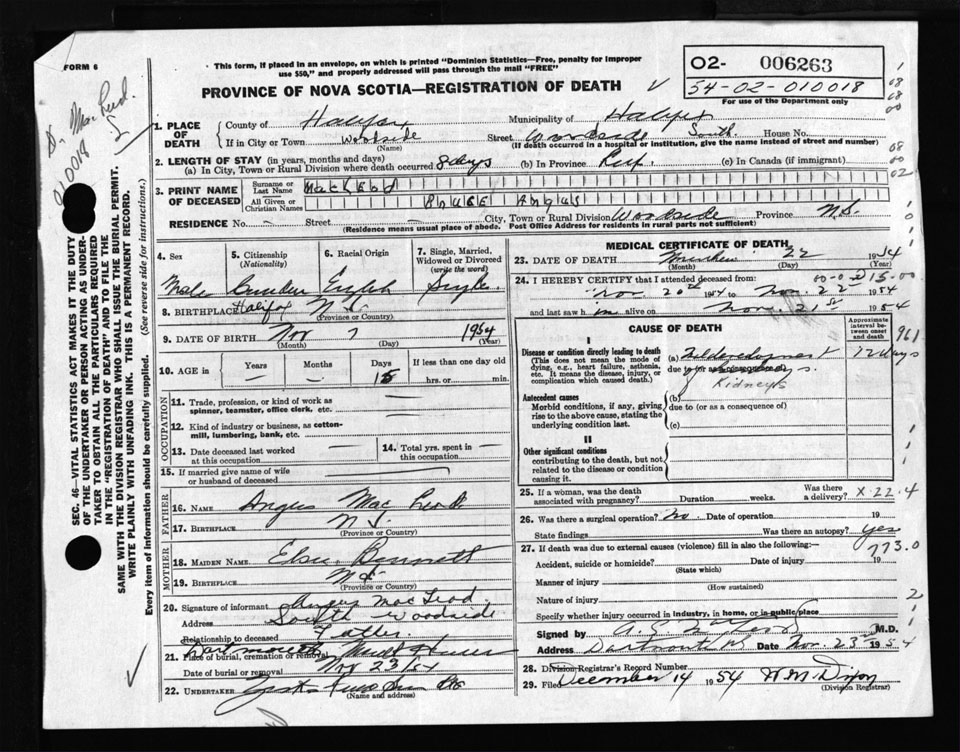 FORM 6
This form, if placed in an envelope, on which is printed "Dominion Statistics—Free, penalty for improper
use $50," and properly addressed will pass through the mail "FREE"
PROVINCE OF NOVA SCOTIA—REGISTRATION OF DEATH
O2- 006263
54-02-010018
For use of the Department only
D. MacLeod
010018
SEC. 46—VITAL STATISTICS ACT MAKES IT THE DUTY
OF THE UNDERTAKER OR PERSON ACTING AS UNDER-
TAKER TO OBTAIN ALL THE PARTICULARS REQUIRED
IN THE "REGISTRATION OF DEATH" AND TO FILE THE
SAME WITH THE DIVISION REGISTRAR WHO SHALL ISSUE THE BURIAL PERMIT.
WRITE PLAINLY WITH UNFADING INK. THIS IS A PERMANENT RECORD.
Every item of information should be carefully supplied. (See reverse side for instructions.)
1. PLACE OF DEATH
County of Halifax Municipality of Halifax
If in City or Town Woodside Street Woodside South House No.
(Name) (If death occurred in a hospital or institution, give the name instead of street and number)
2. LENGTH OF STAY (in years, months and days)
(a) In City, Town or Rural Division where death occurred 8 days (b) In Province Life (c) In Canada (if immigrant)
3. PRINT NAME OF DECEASED
Surname or Last Name MacLeod
All Given or Christian Names Bruce Angus
RESIDENCE No. Street City, Town or Rural Division Woodside Province N.S.
(Residence means usual place of abode. Post Office Address for residents in rural parts not sufficient)
4. Sex
Male
5. Citizenship (Nationality)
Canadian
6. Racial Origin
English
7. Single, Married, Widowed or Divorced (write the word)
Single
8. BIRTHPLACE Halifax N.S.
(Province or Country)
9. DATE OF BIRTH Nov 7 1954
(Month) (Day) (Year)
10. AGE in Years Months Days If less than one day old
— — 15 hrs. or min.
OCCUPATION
11. Trade, profession, or kind of work as spinner, teamster, office clerk, etc. —
12. Kind of industry or business, as cotton-mill, lumbering, bank, etc. —
13. Date deceased last worked at this occupation —
14. Total yrs. spent in this occupation —
15. If married give name of wife or husband of deceased
FATHER
16. Name Angus MacLeod
17. Birthplace N.S.
(Province or Country)
MOTHER
18. MAIDEN NAME Bennett
19. BIRTHPLACE N.S.
(Province or Country)
20. Signature of informant Angus MacLeod
Address South Woodside
Relationship to deceased Father
21. Place of burial, cremation or removal Dartmouth
Date of burial or removal Nov 23/54
22. UNDERTAKER
(Name and address)
MEDICAL CERTIFICATE OF DEATH
23. DATE OF DEATH 22 1954
(Month) (Day) (Year)
24. I HEREBY CERTIFY that I attended deceased from:
Nov. 20th 1954 to Nov. 22nd 1954
and last saw him alive on Nov. 21st 1954
CAUSE OF DEATH
Approximate interval between onset and death
I
Disease or condition directly leading to death
(This does not mean the mode of dying, e.g., heart failure, asthenia, etc. It means the disease, injury, or complication which caused death.)
(a) 12 days
due to
Kidneys
Antecedent causes
Morbid conditions, if any, giving rise to the above cause, stating the underlying condition last.
(b)
due to (or as a consequence of)
(c)
II
Other significant conditions
contributing to the death, but not related to the disease or condition causing it.
25. If a woman, was the death associated with pregnancy? Duration weeks. Was there a delivery?
X.22.4
26. Was there a surgical operation? No Date of operation 19
State findings Was there an autopsy? yes
27. If death was due to external causes (violence) fill in also the following:—
773.0
Accident, suicide or homicide? Date of injury 19
(State which)
Manner of injury
(How sustained)
Nature of injury
Specify whether injury occurred in industry, in home, or in public place
Signed by M.D.
Address Dartmouth NS Date Nov. 23rd 1954
28. Division Registrar's Record Number
29. Filed December 14 1954 W.M. Dixon
(Division Registrar)